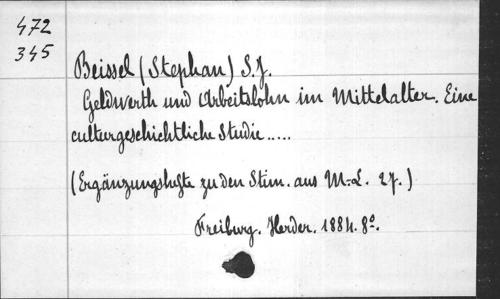 472
345
Beissel (Stephan) S.J.
Geldwerth und Arbeitslohn im Mittelalter. Eine
culturgeschichtliche Studie.....
(Ergänzungshefte zu den Stim. aus M.-L. 27.)
Freiburg. Herder. 1884. 8º.